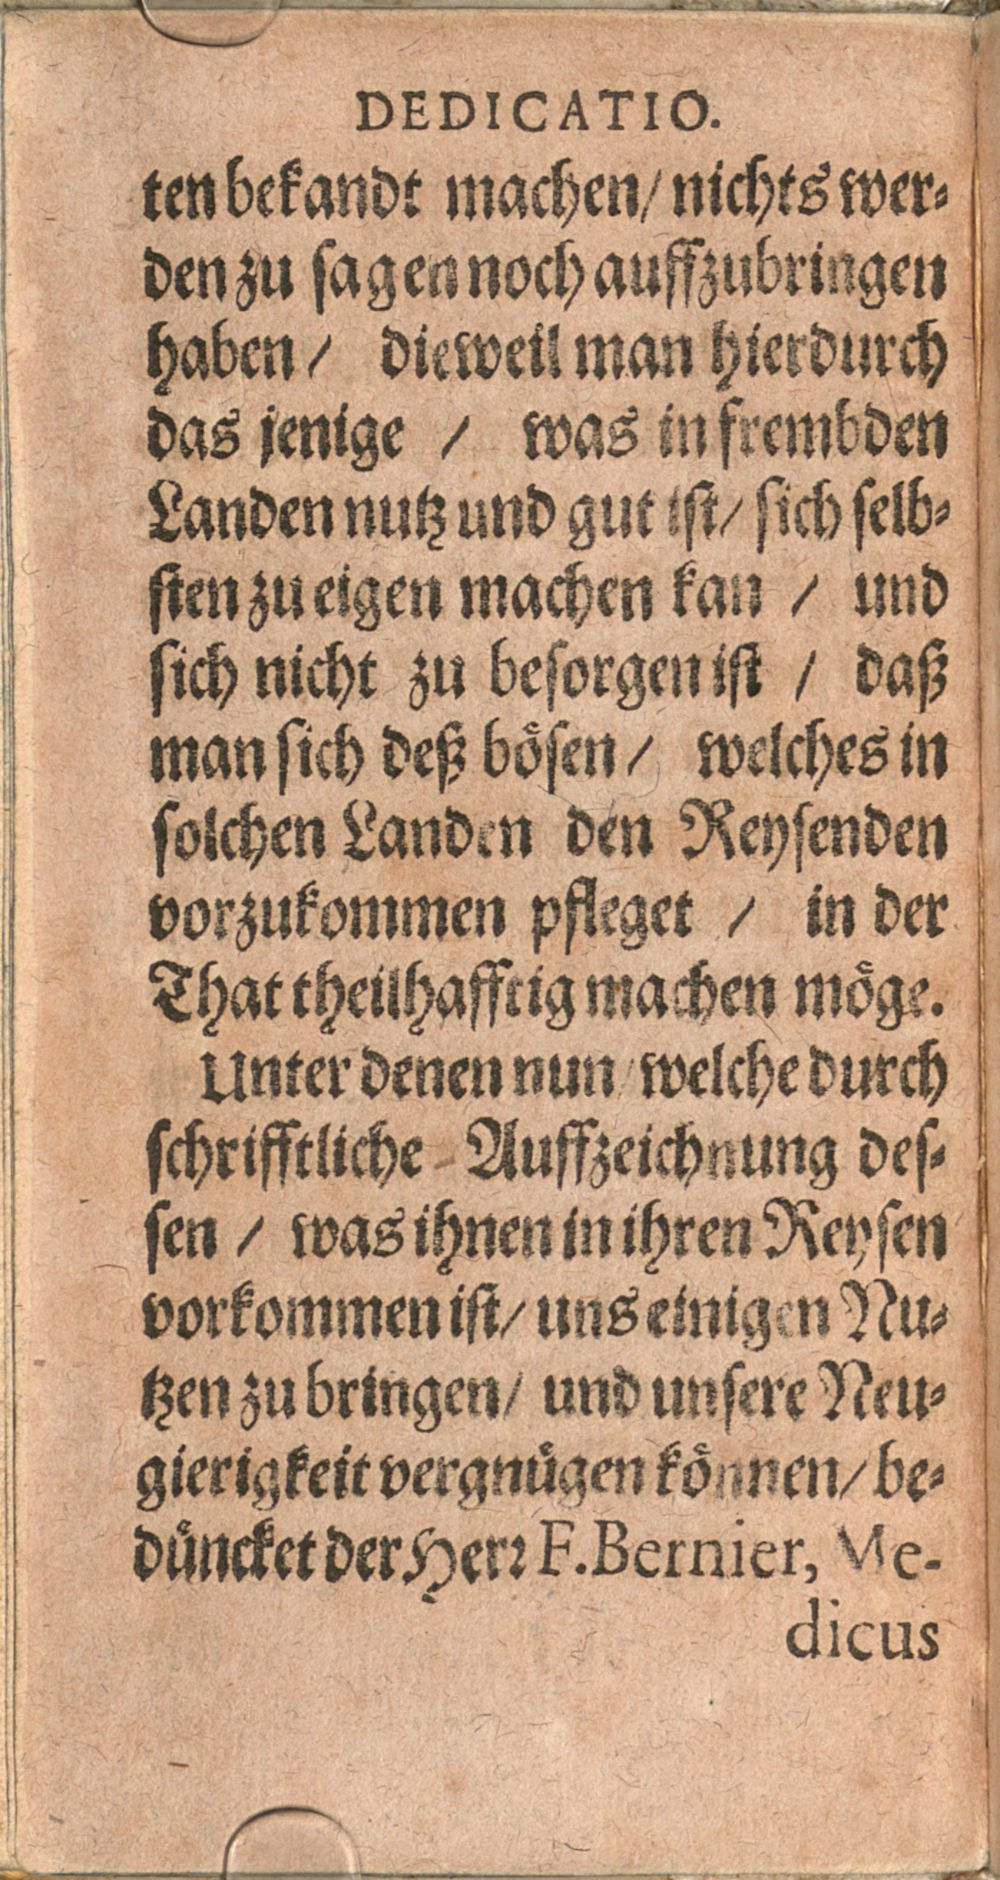 DEDICATIO.
ten bekandt machen/ nichts wer-
den zu sagen noch auffzubringen
haben/ dieweil man hierdurch
das jenige / was in frembden
Landen nutz und gut ist/ sich selb-
sten zu eigen machen kan / und
sich nicht zu besorgen ist / daß
man sich deß bösen/ welches in
solchen Landen den Reysenden
vorzukommen pfleget / in der
That theilhafftig machen möge.
Unter denen nun welche durch
schrifftliche Auffzeichnung des-
sen / was ihnen in ihren Reysen
vorkommen ist/ uns einigen Nu-
tzen zu bringen/ und unsere Neu-
gierigkeit vergnügen können/ be-
düncket der Herr F. Bernier, Me-
dicus